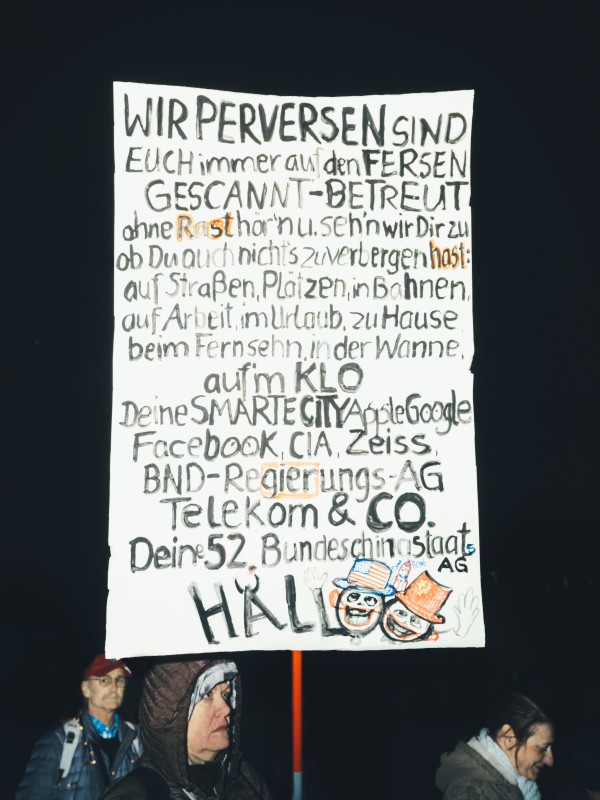 WIR PERVERSEN SIND
EUCH immer auf den FERSEN
GESCANNT-BETREUT
ohne Rast hör'n u. seh'n wir Dir zu
ob Du auch nichts zu verbergen hast:
auf Straßen, Plätzen, in Bahnen,
auf Arbeit, im Urlaub, zu Hause
beim Fernsehn, in der Wanne,
auf'm KLO
Deine SMARTE CITY Apple Google
Facebook, CIA, Zeiss,
BND-Regierungs-AG
Telekom & CO.
Deine 52. Bundeschinastaats
AG
HÄLLOO